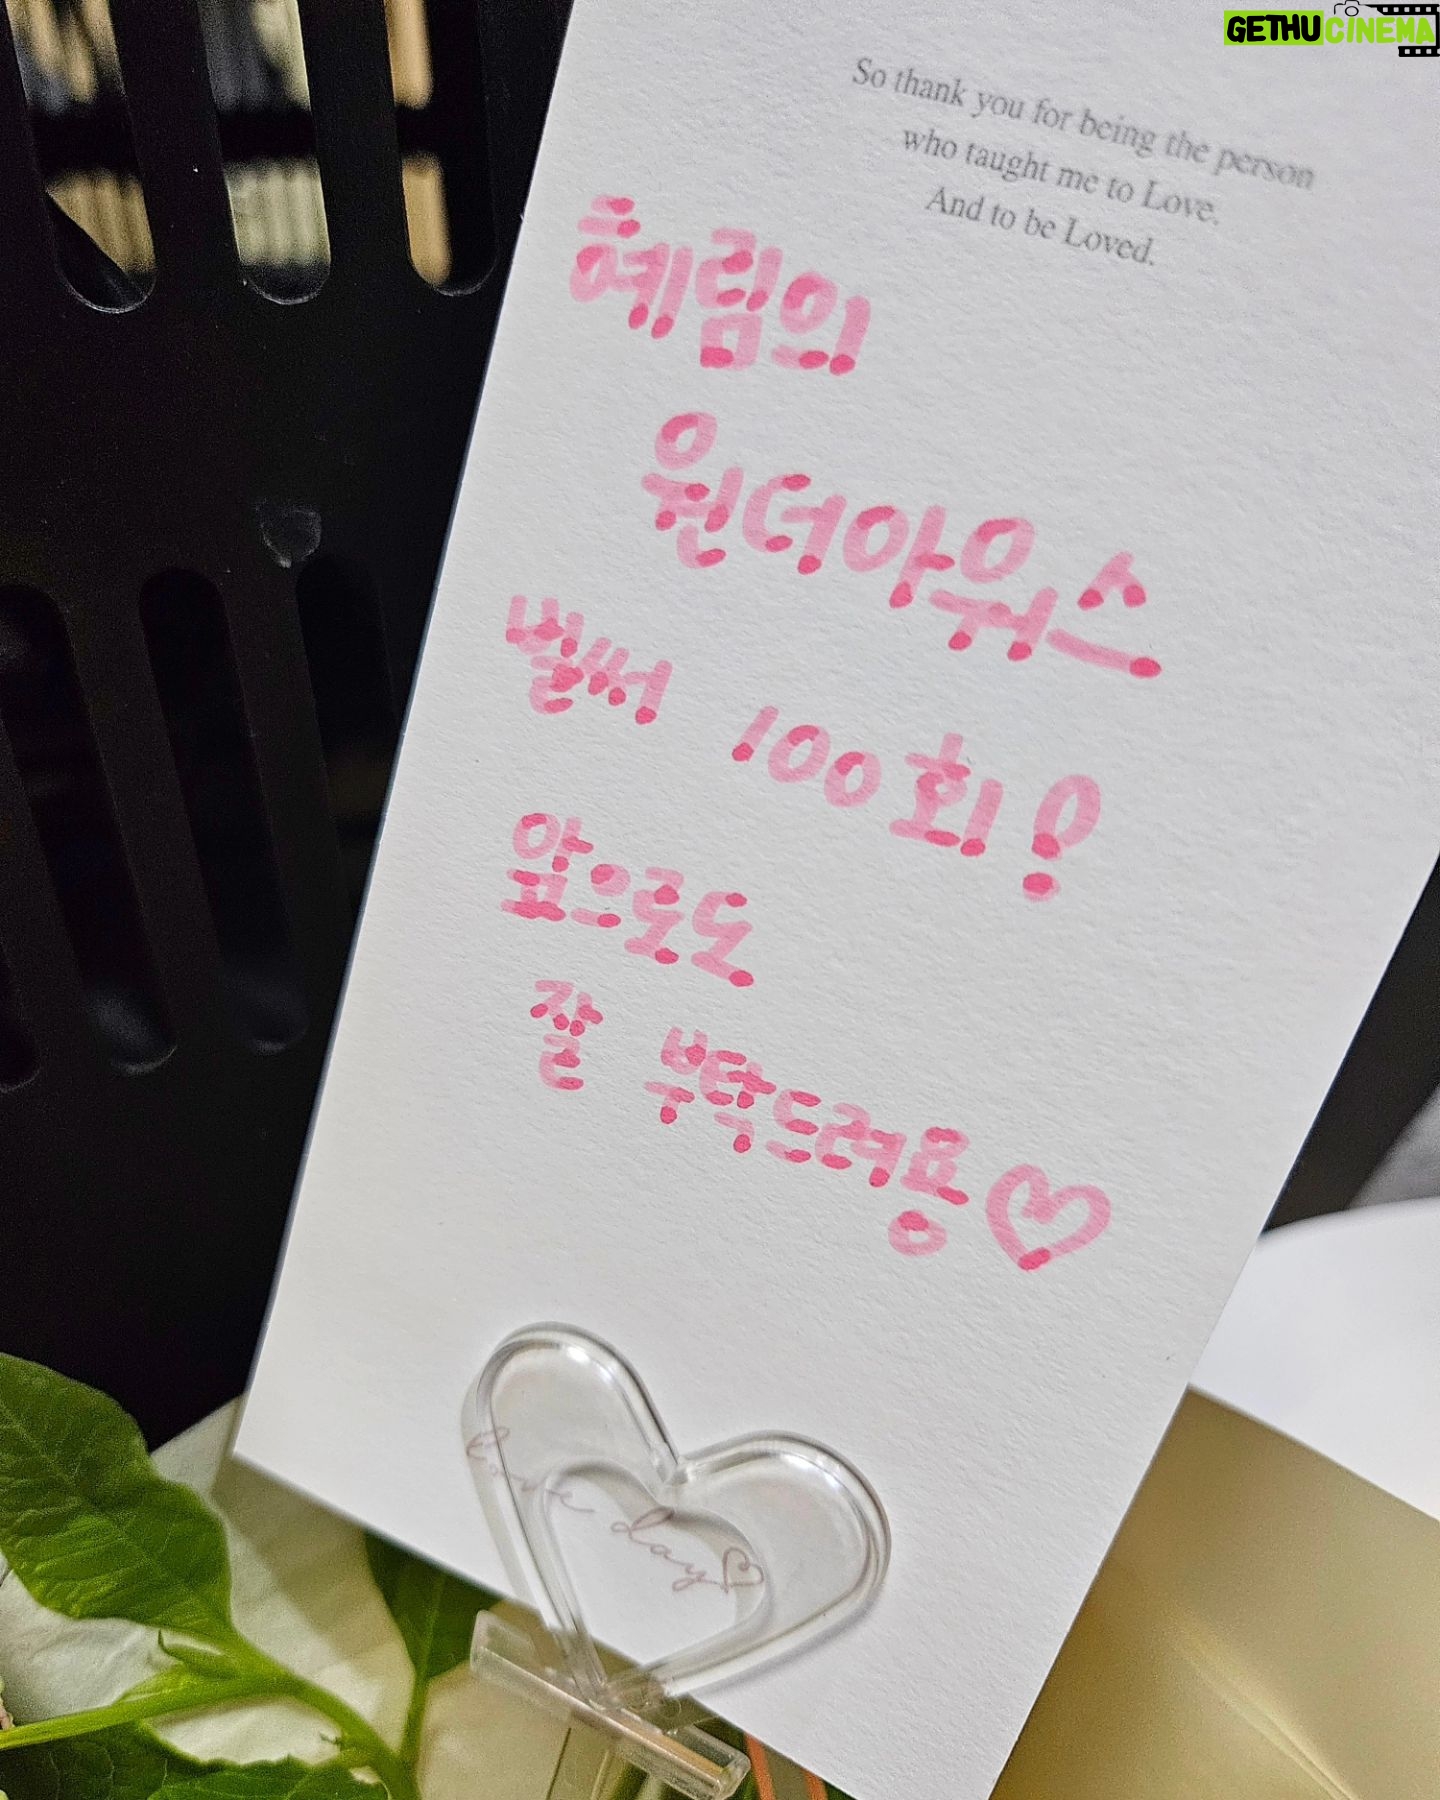 GETHUCINEMA
So thank you for being the person
who taught me to Love.
And to be Loved.
혜림의
원더아워스
벌써 100회!
앞으로도
잘 부탁드려용♡
love day♡